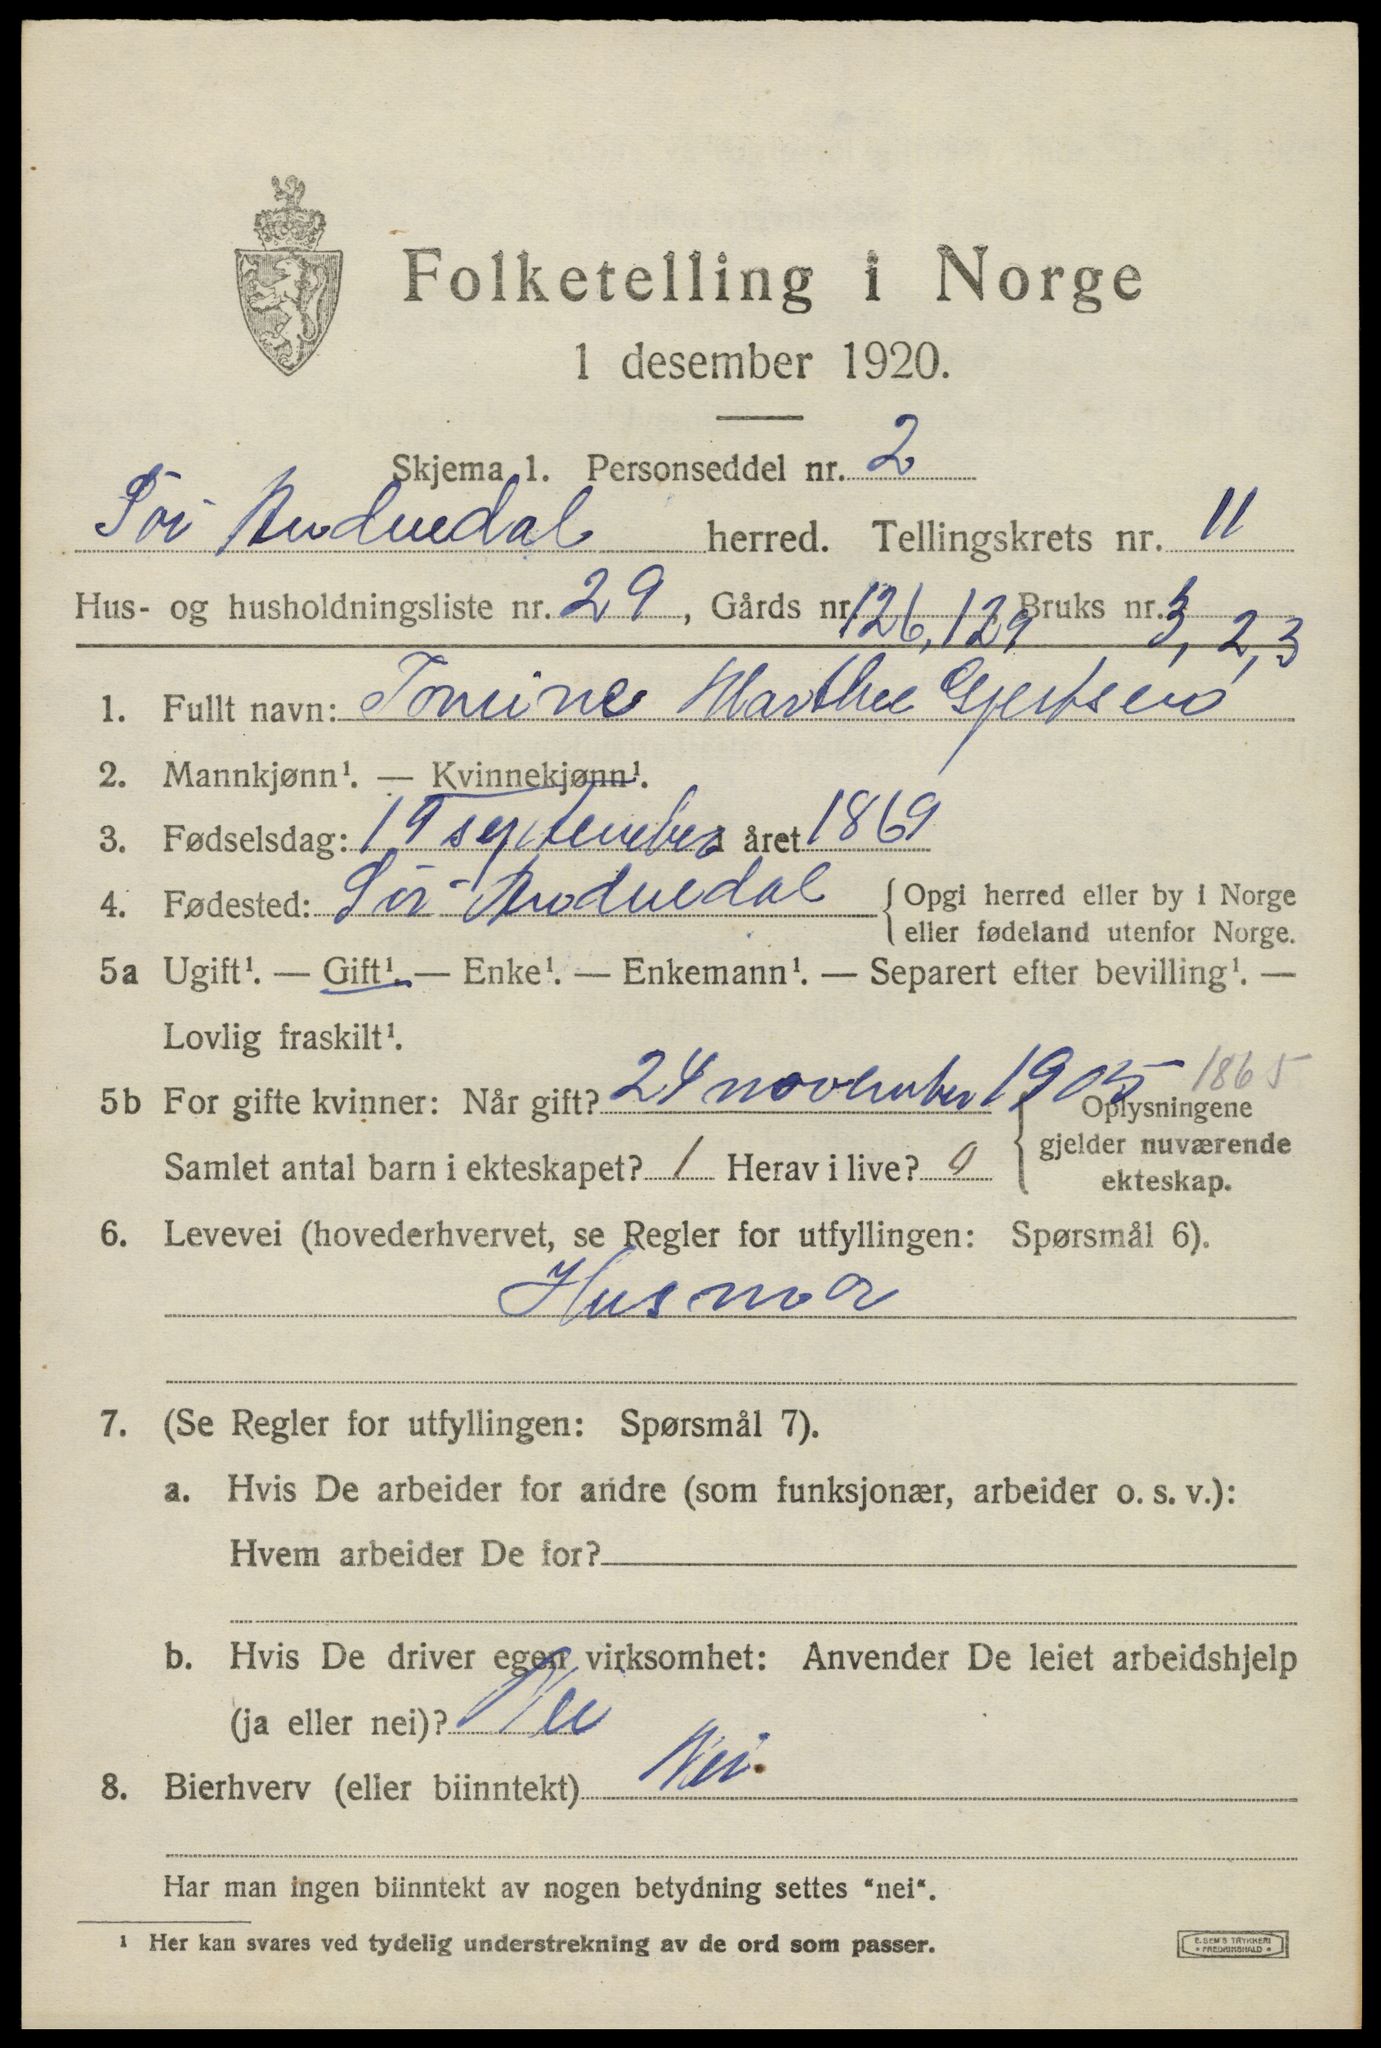 Folketelling i Norge
1 desember 1920.
Skjema 1. Personseddel nr. 2
Sör Audnedal herred. Tellingskrets nr. 11
Hus- og husholdningsliste nr. 29, Gårds nr. 126, 129 Bruks nr. 3, 2, 3
1. Fullt navn: Tomine Marthee Gjertsen
2. Mannkjønn¹. — Kvinnekjønn¹.
3. Fødselsdag: 19 september i året 1869
4. Fødested: Sör Audnedal {Opgi herred eller by i Norge
eller fødeland utenfor Norge.
5a Ugift¹. — Gift¹. — Enke¹. — Enkemann¹. — Separert efter bevilling¹. —
Lovlig fraskilt¹.
5b For gifte kvinner: Når gift? 24 november 1905 1865
Samlet antal barn i ekteskapet? 1 Herav i live? 0 {Oplysningene
gjelder nuværende
ekteskap.
6. Levevei (hovederhvervet, se Regler for utfyllingen: Spørsmål 6).
Husmor
7. (Se Regler for utfyllingen: Spørsmål 7).
a. Hvis De arbeider for andre (som funksjonær, arbeider o. s. v.):
Hvem arbeider De for?
b. Hvis De driver egen virksomhet: Anvender De leiet arbeidshjelp
(ja eller nei)? Nei
8. Bierhverv (eller biinntekt) Nei.
Har man ingen biinntekt av nogen betydning settes "nei".
¹ Her kan svares ved tydelig understrekning av de ord som passer.
E. SEM'S TRYKKERI
* FREDRIKSHALD *